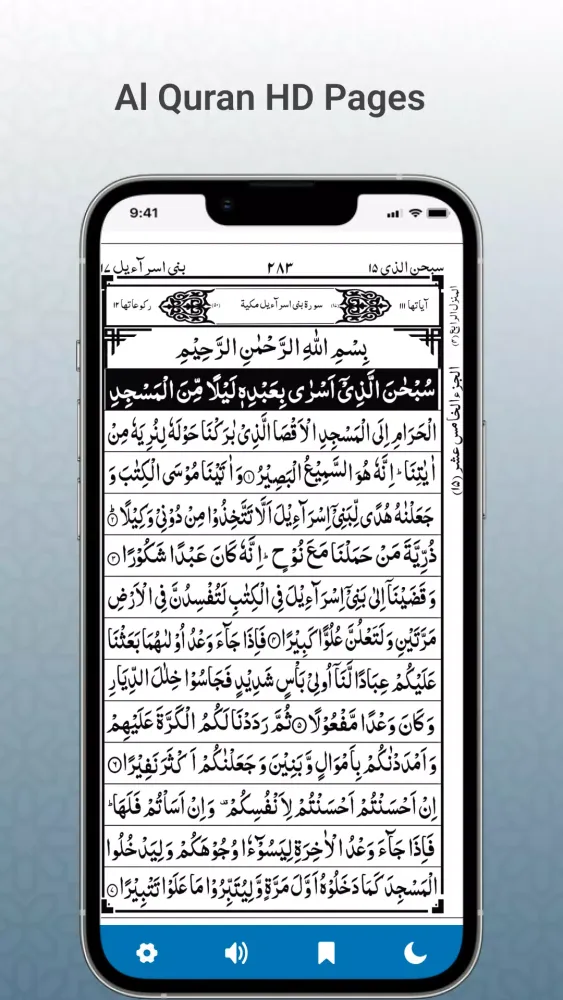 Al Quran HD Pages
9:41
سبحن الذی ۱۵ ۲۸۳ بنی اسرآءیل ۱۷
آیاتها ۱۱۱ سورة بنی اسرآءیل مکیة رکوعاتها ۱۲
بِسْمِ اللهِ الرَّحْمٰنِ الرَّحِيْمِ
سُبْحٰنَ الَّذِيْۤ اَسْرٰى بِعَبْدِهٖ لَيْلًا مِّنَ الْمَسْجِدِ
الْحَرَامِ اِلَى الْمَسْجِدِ الْاَقْصَا الَّذِيْ بٰرَكْنَا حَوْلَهٗ لِنُرِيَهٗ مِنْ
اٰيٰتِنَا ؕ اِنَّهٗ هُوَ السَّمِيْعُ الْبَصِيْرُ ۱ وَ اٰتَيْنَا مُوْسَى الْكِتٰبَ وَ
جَعَلْنٰهُ هُدًى لِّبَنِيْۤ اِسْرَآءِيْلَ اَلَّا تَتَّخِذُوْا مِنْ دُوْنِيْ وَكِيْلًا ۲ؕ
ذُرِّيَّةَ مَنْ حَمَلْنَا مَعَ نُوْحٍ ؕ اِنَّهٗ كَانَ عَبْدًا شَكُوْرًا ۳
وَ قَضَيْنَاۤ اِلٰى بَنِيْۤ اِسْرَآءِيْلَ فِي الْكِتٰبِ لَتُفْسِدُنَّ فِي الْاَرْضِ
مَرَّتَيْنِ وَ لَتَعْلُنَّ عُلُوًّا كَبِيْرًا ۴ فَاِذَا جَآءَ وَعْدُ اُوْلٰىهُمَا بَعَثْنَا
عَلَيْكُمْ عِبَادًا لَّنَاۤ اُولِيْ بَاْسٍ شَدِيْدٍ فَجَاسُوْا خِلٰلَ الدِّيَارِ ؕ
وَ كَانَ وَعْدًا مَّفْعُوْلًا ۵ ثُمَّ رَدَدْنَا لَكُمُ الْكَرَّةَ عَلَيْهِمْ
وَ اَمْدَدْنٰكُمْ بِاَمْوَالٍ وَّ بَنِيْنَ وَ جَعَلْنٰكُمْ اَكْثَرَ نَفِيْرًا ۶
اِنْ اَحْسَنْتُمْ اَحْسَنْتُمْ لِاَنْفُسِكُمْ ۫ وَ اِنْ اَسَاْتُمْ فَلَهَا ؕ
فَاِذَا جَآءَ وَعْدُ الْاٰخِرَةِ لِيَسُوْٓءٗا وُجُوْهَكُمْ وَ لِيَدْخُلُوا
الْمَسْجِدَ كَمَا دَخَلُوْهُ اَوَّلَ مَرَّةٍ وَّ لِيُتَبِّرُوْا مَا عَلَوْا تَتْبِيْرًا ۷
المنزل الرابع (۴)
الجزء الخامس عشر (۱۵)